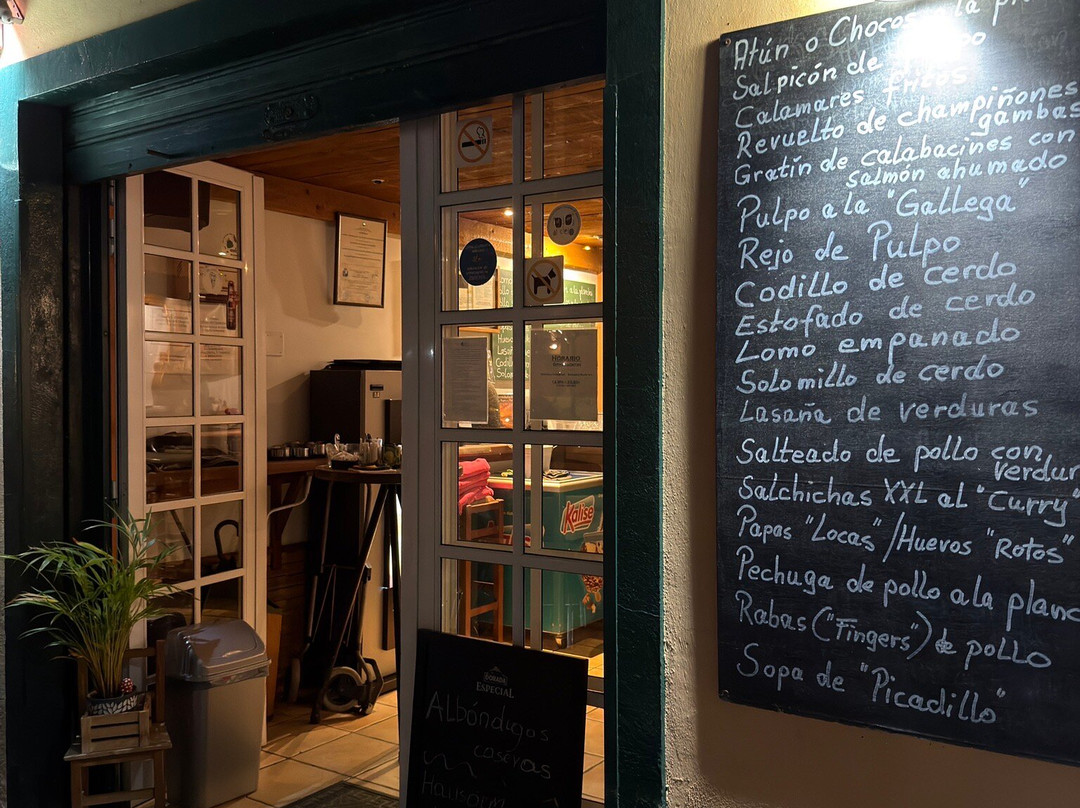 Atún o Chocos a la
Salpicón de
Calamares fritos
Revuelto de champiñones
gambas
Gratín de calabacines con
salmón ahumado
Pulpo a la "Gallega"
Rejo de Pulpo
Codillo de cerdo
Estofado de cerdo
Lomo empanado
Solomillo de cerdo
Lasaña de verduras
Salteado de pollo con
verdur
Salchichas XXL al "Curry"
Papas "Locas"/Huevos "Rotos"
Pechuga de pollo a la planc
Rabas ("Fingers") de pollo
Sopa de "Picadillo"
HORARIO
Kalise
DORADA
ESPECIAL
Albóndigas
caseras